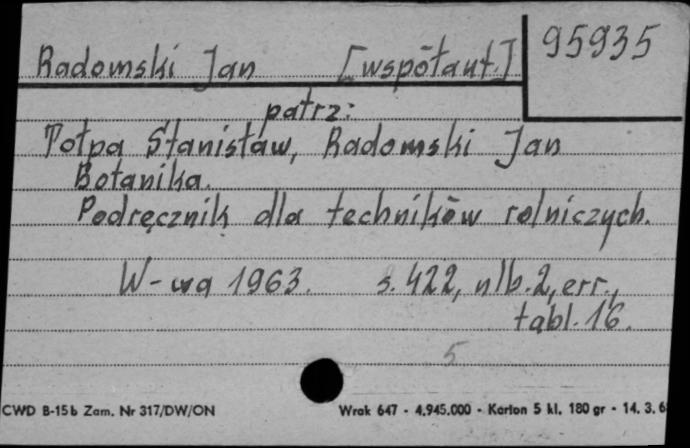 95935
Radomski Jan [współaut.]
patrz:
Tołpa Stanisław, Radomski Jan
Botanika.
Podręcznik dla techników rolniczych.
W-wa 1963. s. 422, nlb. 2, err.,
tabl. 16.
5
CWD B-15b Zam. Nr 317/DW/ON Wrak 647 - 4.945.000 - Karton 5 kl. 180 gr - 14. 3. 6